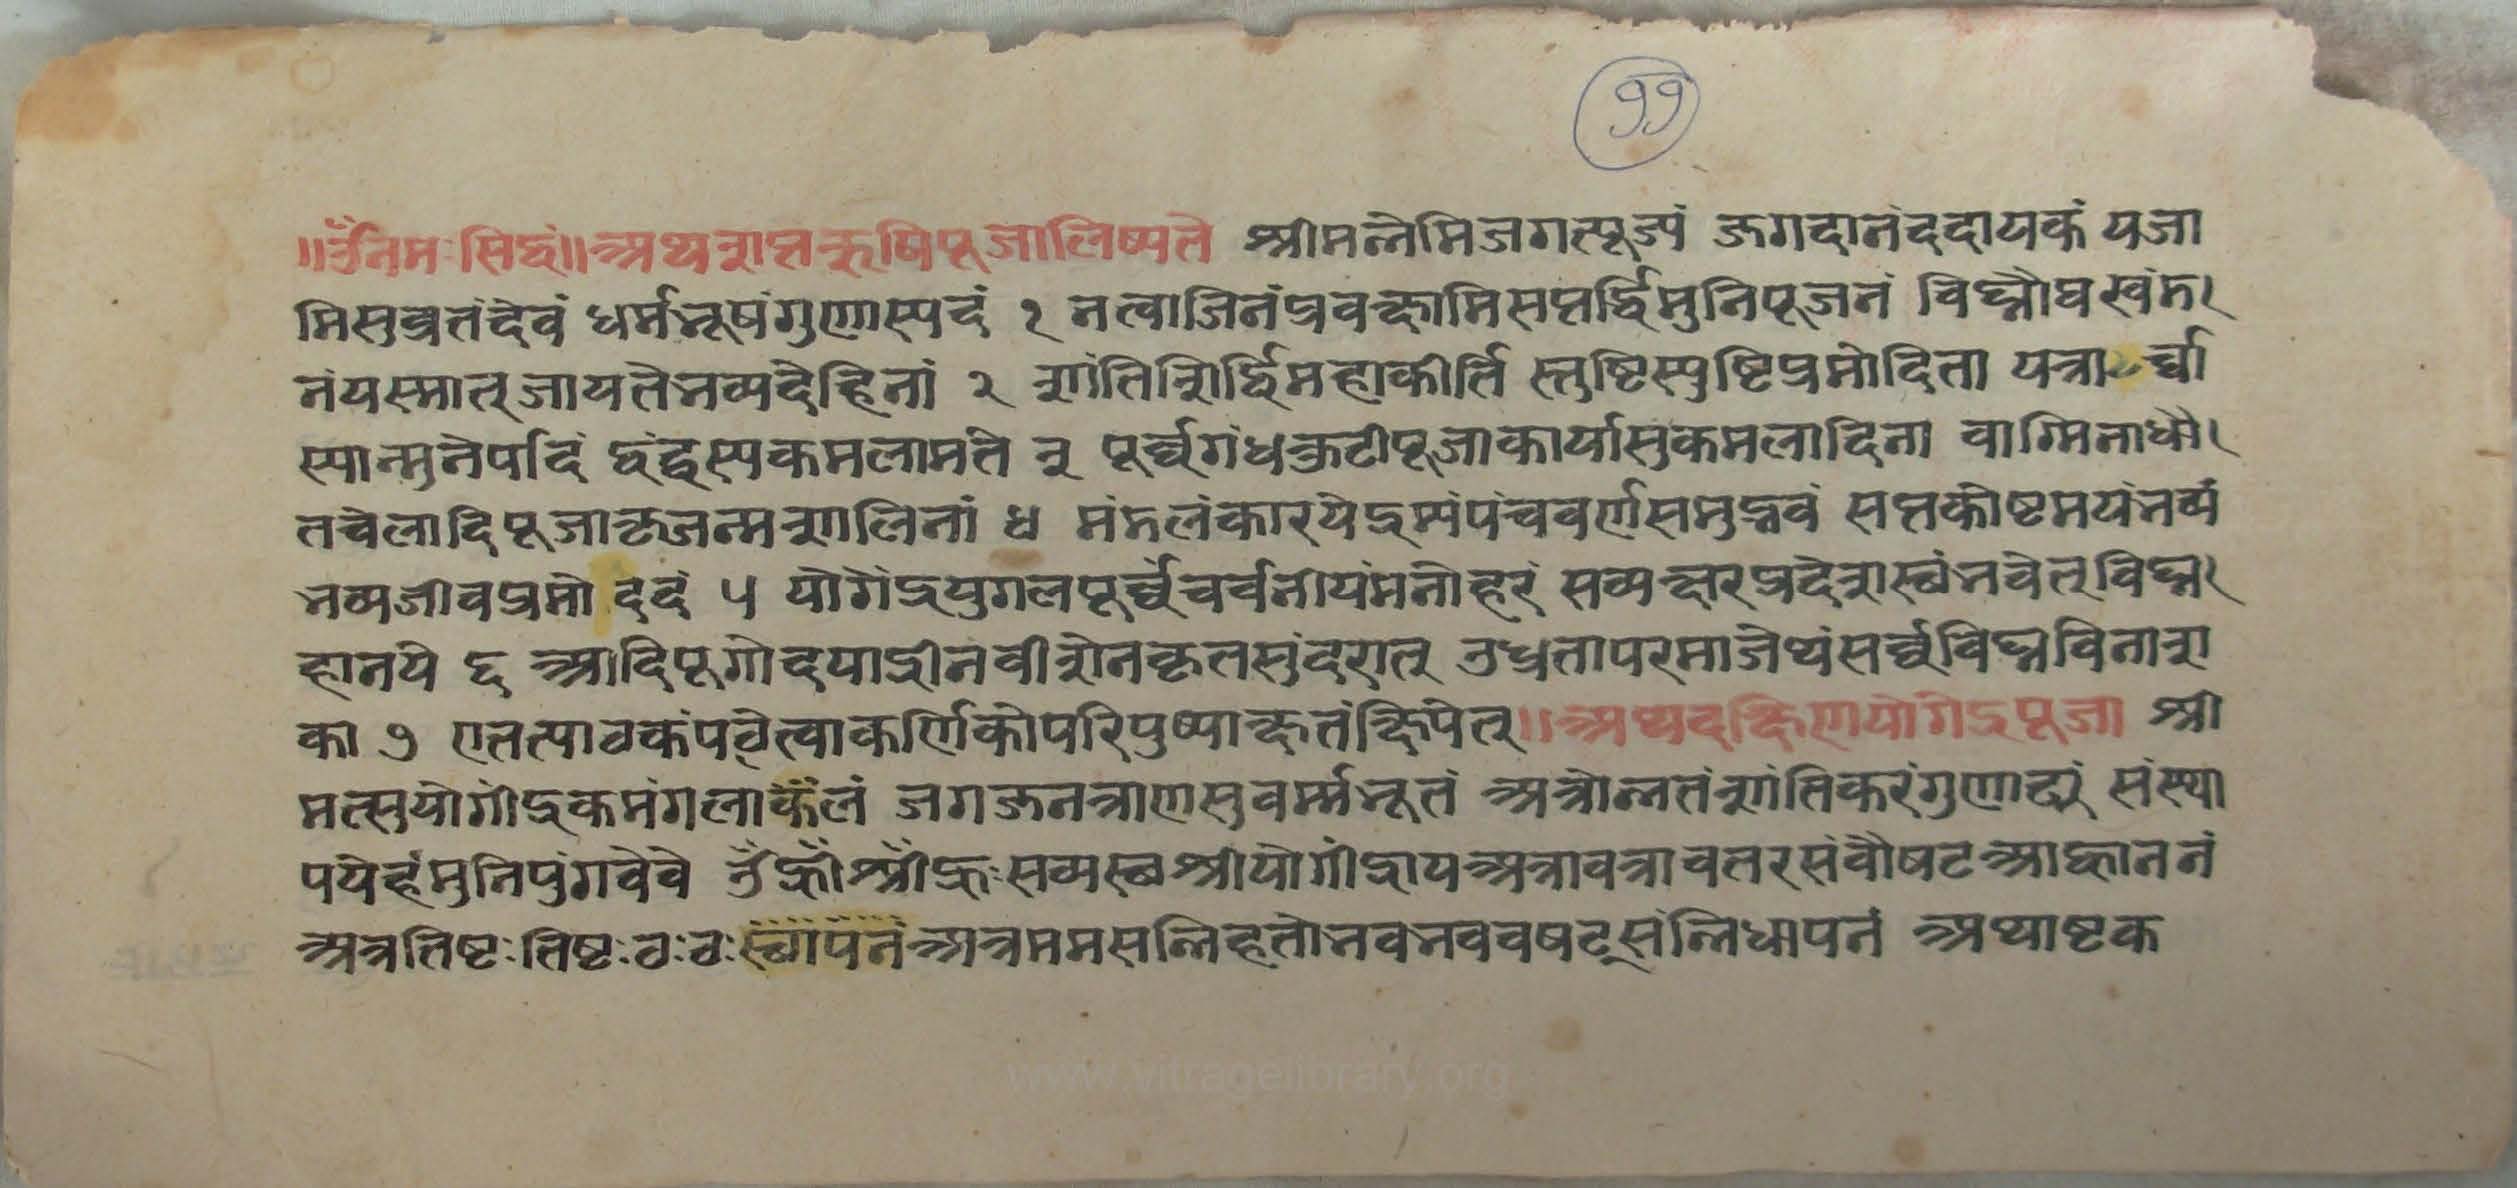 ११
॥ॐनमःसिद्धं॥अथशप्तऋषिपूजालिष्यते श्रीमन्नेमिजगत्पूज्यं जगदानंददायकं यजा
मिसुव्रतंदेवं धर्मभूषंगुणास्पदं १ नत्वाजिनंप्रवक्ष्यामिसप्तर्द्धिमुनिपूजनं विघ्नौघखंड।
नंयस्मात्जायतेभव्यदेहिनां २ शांतिर्शिर्द्धिमहाकीर्ति स्तुष्टिस्पुष्टिप्रमोदिता यत्रार्च्चा
स्यान्मुनेर्पादं द्वंद्वस्यकमलामते ३ पूर्व्वगंधकुटीपूजाकार्यासुकमलादिना वाग्मिनाधौ।
तचेलादिपूजाकृजन्मशालिनां ४ मंडलंकारयेद्रम्यंपंचवर्णसमुद्भवं सप्तकोष्टमयंभव्यं
भव्यजीवप्रमोददं ५ योगेंद्रयुगलपूर्व्वंचर्चनीयंमनोहरं सव्यक्षरप्रदेशस्थंभवेत्विघ्न।
हानये ६ आदिपूगोदयाद्रीनवीशेनकृतसुंदरात् उध्रतापरमाजेथंसर्व्वविघ्नविनाश
का ७ एतत्पाठकंपठेत्वाकर्णिकोपरिपुष्पाक्षतंक्षिपेत्॥अथदक्षिणयोगेंद्रपूजा श्री
मत्सुयोगींद्रकमंगलाकलं जगज्जनत्राणसुवर्म्मभूतं अत्रोन्नतंशांतिकरंगुणाढ्यं संस्था
पयेहंमुनिपुंगवेवे ॐह्रींश्रींह्रःसव्यस्थश्रीयोगींद्रायअत्रावत्रावतरसंवौषटआह्वाननं
अत्रतिष्टःतिष्टःठःठःस्थापनंअत्रममसन्निहतोभवभववषट्संन्निधापनं अथाष्टक
www.vitragelibrary.org